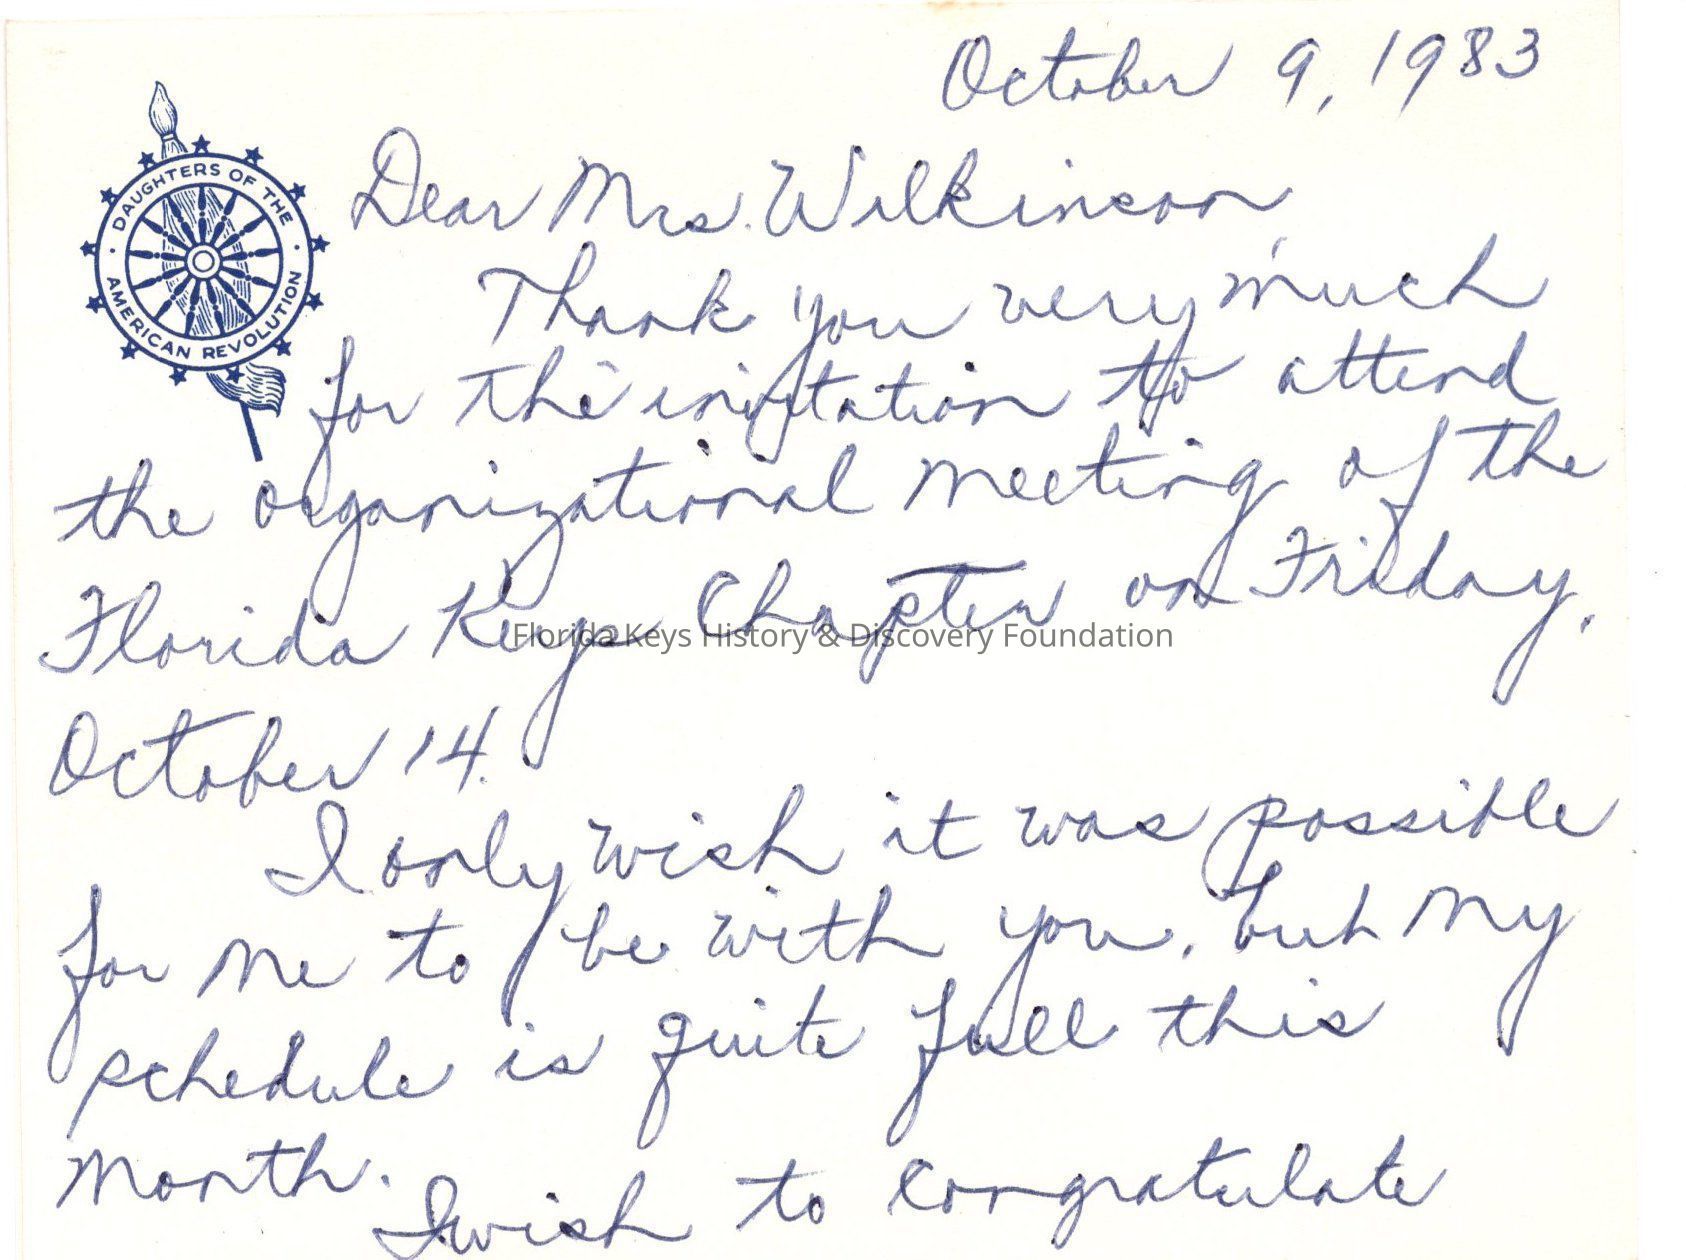 October 9, 1983
DAUGHTERS OF THE
AMERICAN REVOLUTION
Dear Mrs. Wilkinson,
Thank you very much
for the invitation to attend
the organizational meeting of the
Florida Keys Chapter on Friday,
Florida Keys History & Discovery Foundation
October 14.
I only wish it was possible
for me to be with you, but my
schedule is quite full this
month.
I wish to congratulate